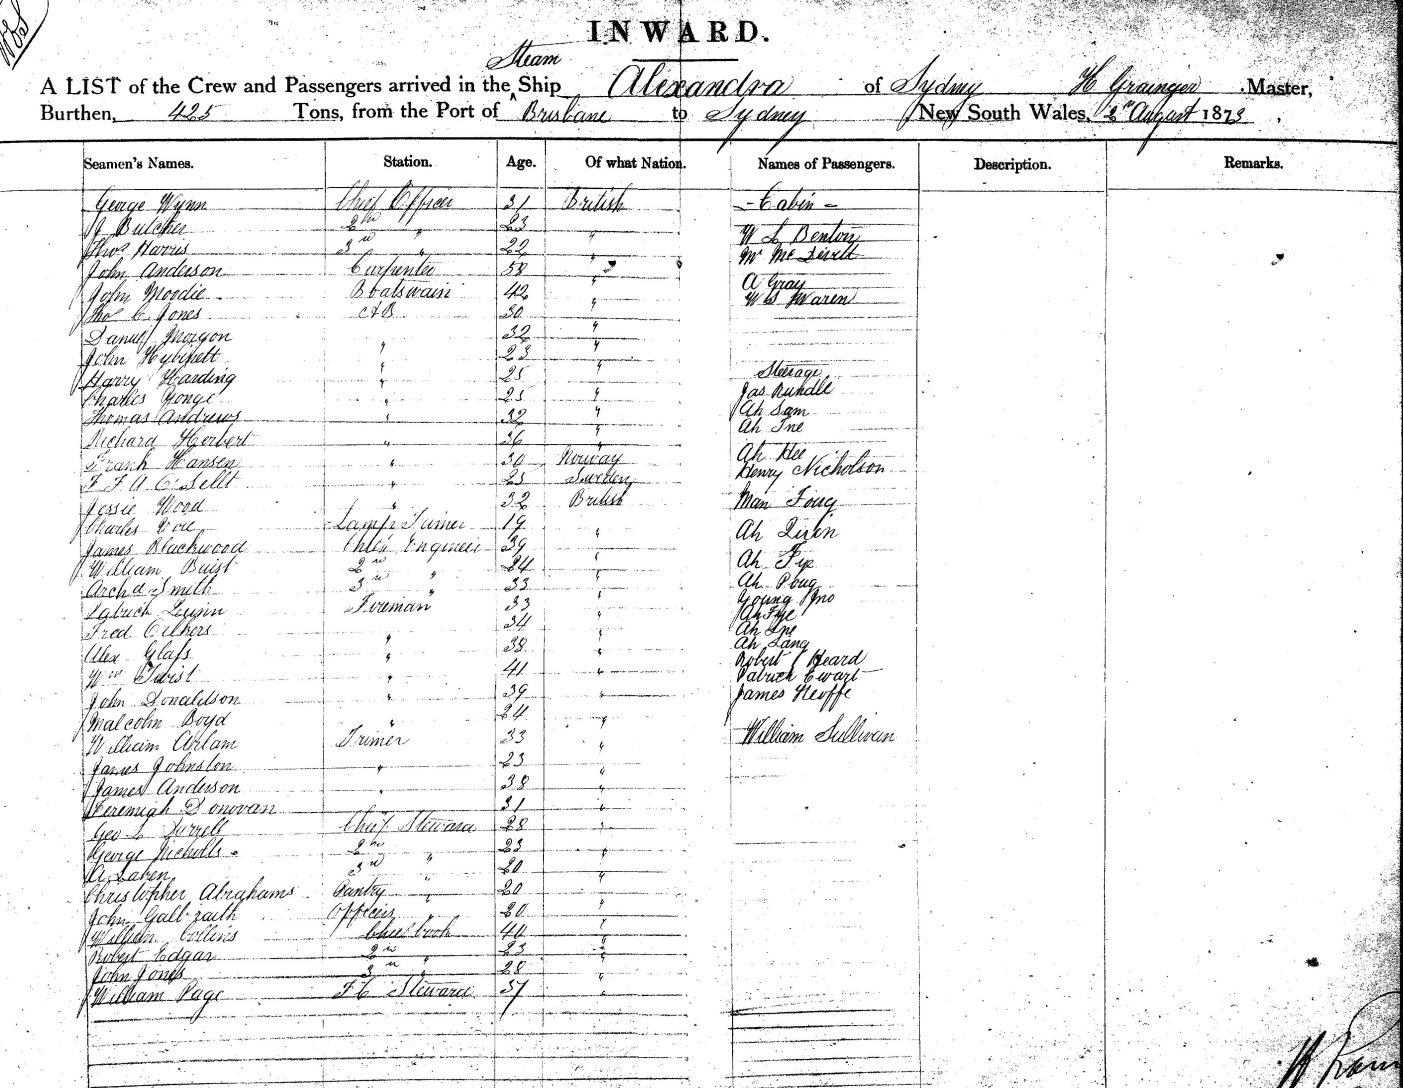 INWARD.
Steam
A LIST of the Crew and Passengers arrived in the Ship Alexandra of Sydney H Grainger Master,
Burthen, 425 Tons, from the Port of Brisbane to Sydney New South Wales, 2nd August 1873
Seamen's Names. Station. Age. Of what Nation. Names of Passengers. Description. Remarks.
George Wynn Chief Officer 31 British - Cabin -
J Butcher 2nd " 23 "
Thos Harris 3rd " 22 " W L Benton
John Anderson Carpenter 58 " Mr
John Moodie Boatswain 42 " A Gray
Thos C Jones AB 30 " W S Waren
Daniel Morgon 32 "
John " 23 "
Harry Harding " 25 " Steerage
Charles " 25 " Jas Rundle
Thomas Andrews " 32 " Ah Sam
Richard Herbert " 36 " Ah
Frank Hansen " 30 Norway Ah Hee
F F A C " 25 Sweden Henry Nicholson
Jessie Wood " 32 British Man Foug
Charles Lamp Trimer 19 " Ah
James Blackwood Chief Engineer 39 "
William Buist 2nd " 24 " Ah Fye
Archd Smith 3rd " 33 " Ah Poug
Patrick Fireman 33 " Young Jno
Fred 34 " Ah Fye
Alex Glass " 38 " Ah
Wm Twist " 41 " Ah Lang
Robert Heard
John Donaldson " 39 " Patrick Ewart
Malcolm Boyd " 24 " James
William Arlam Trimer 33 " William Sullivan
James Johnston " 23 "
James Anderson " 38 "
Jeremiah Donovan 31 "
Geo L Chief Steward 28 "
George Nicholls 2nd " 23 "
A 3rd " 20 "
Christopher Abrahams Pantry " 20 "
John Galbraith Officers " 20 "
William Collins Chief Cook 40 "
Robert Edgar 2nd " 23 "
John Jones 3rd " 28 "
William Page F C Steward 37 "